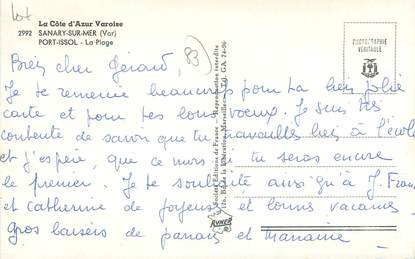 Lot
La Côte d'Azur Varoise
2992 SANARY-SUR-MER (Var)
PORT-ISSOL - La Plage
83
PHOTOGRAPHIE
VÉRITABLE
cher Gérard,
Je te remercie beaucoup pour ta très jolie
carte et pour tes bons voeux. Je suis très
contente de savoir que tu travailles bien à l'école
et j'espère, que ce mois tu seras encore
le premier. Je te souhaite ainsi qu'à J. Fran
et catherine de joyeuses et bonnes vacances.
gros baisers de et
Société Éditions de France - Reproduction interdite